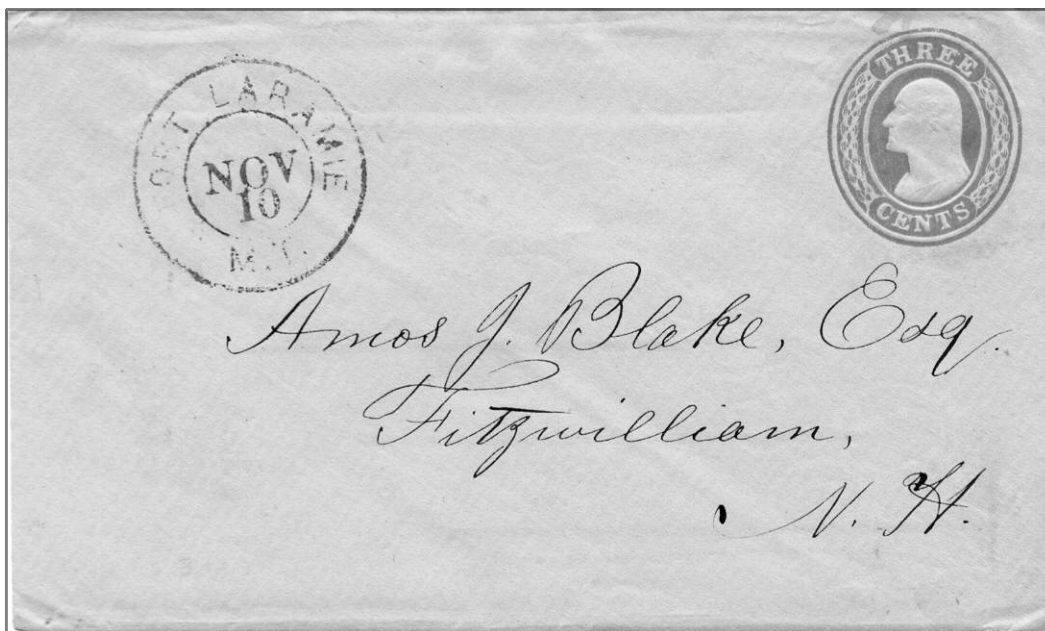 FORT LARAMIE
NOV
10
N.T.
THREE
CENTS
Amos J. Blake, Esq.
Fitzwilliam,
N. H.